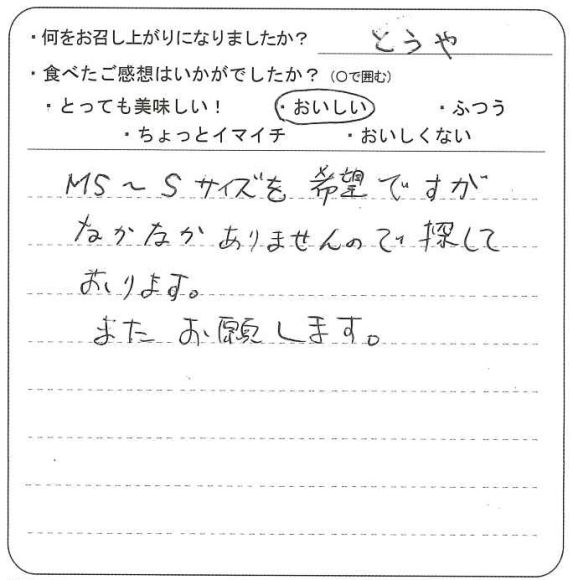 ・何をお召し上がりになりましたか？ とうや
・食べたご感想はいかがでしたか？（○で囲む）
・とっても美味しい！ ・おいしい ・ふつう
・ちょっとイマイチ ・おいしくない
MS～Sサイズを希望ですが
なかなかありませんので探して
おります。
またお願します。